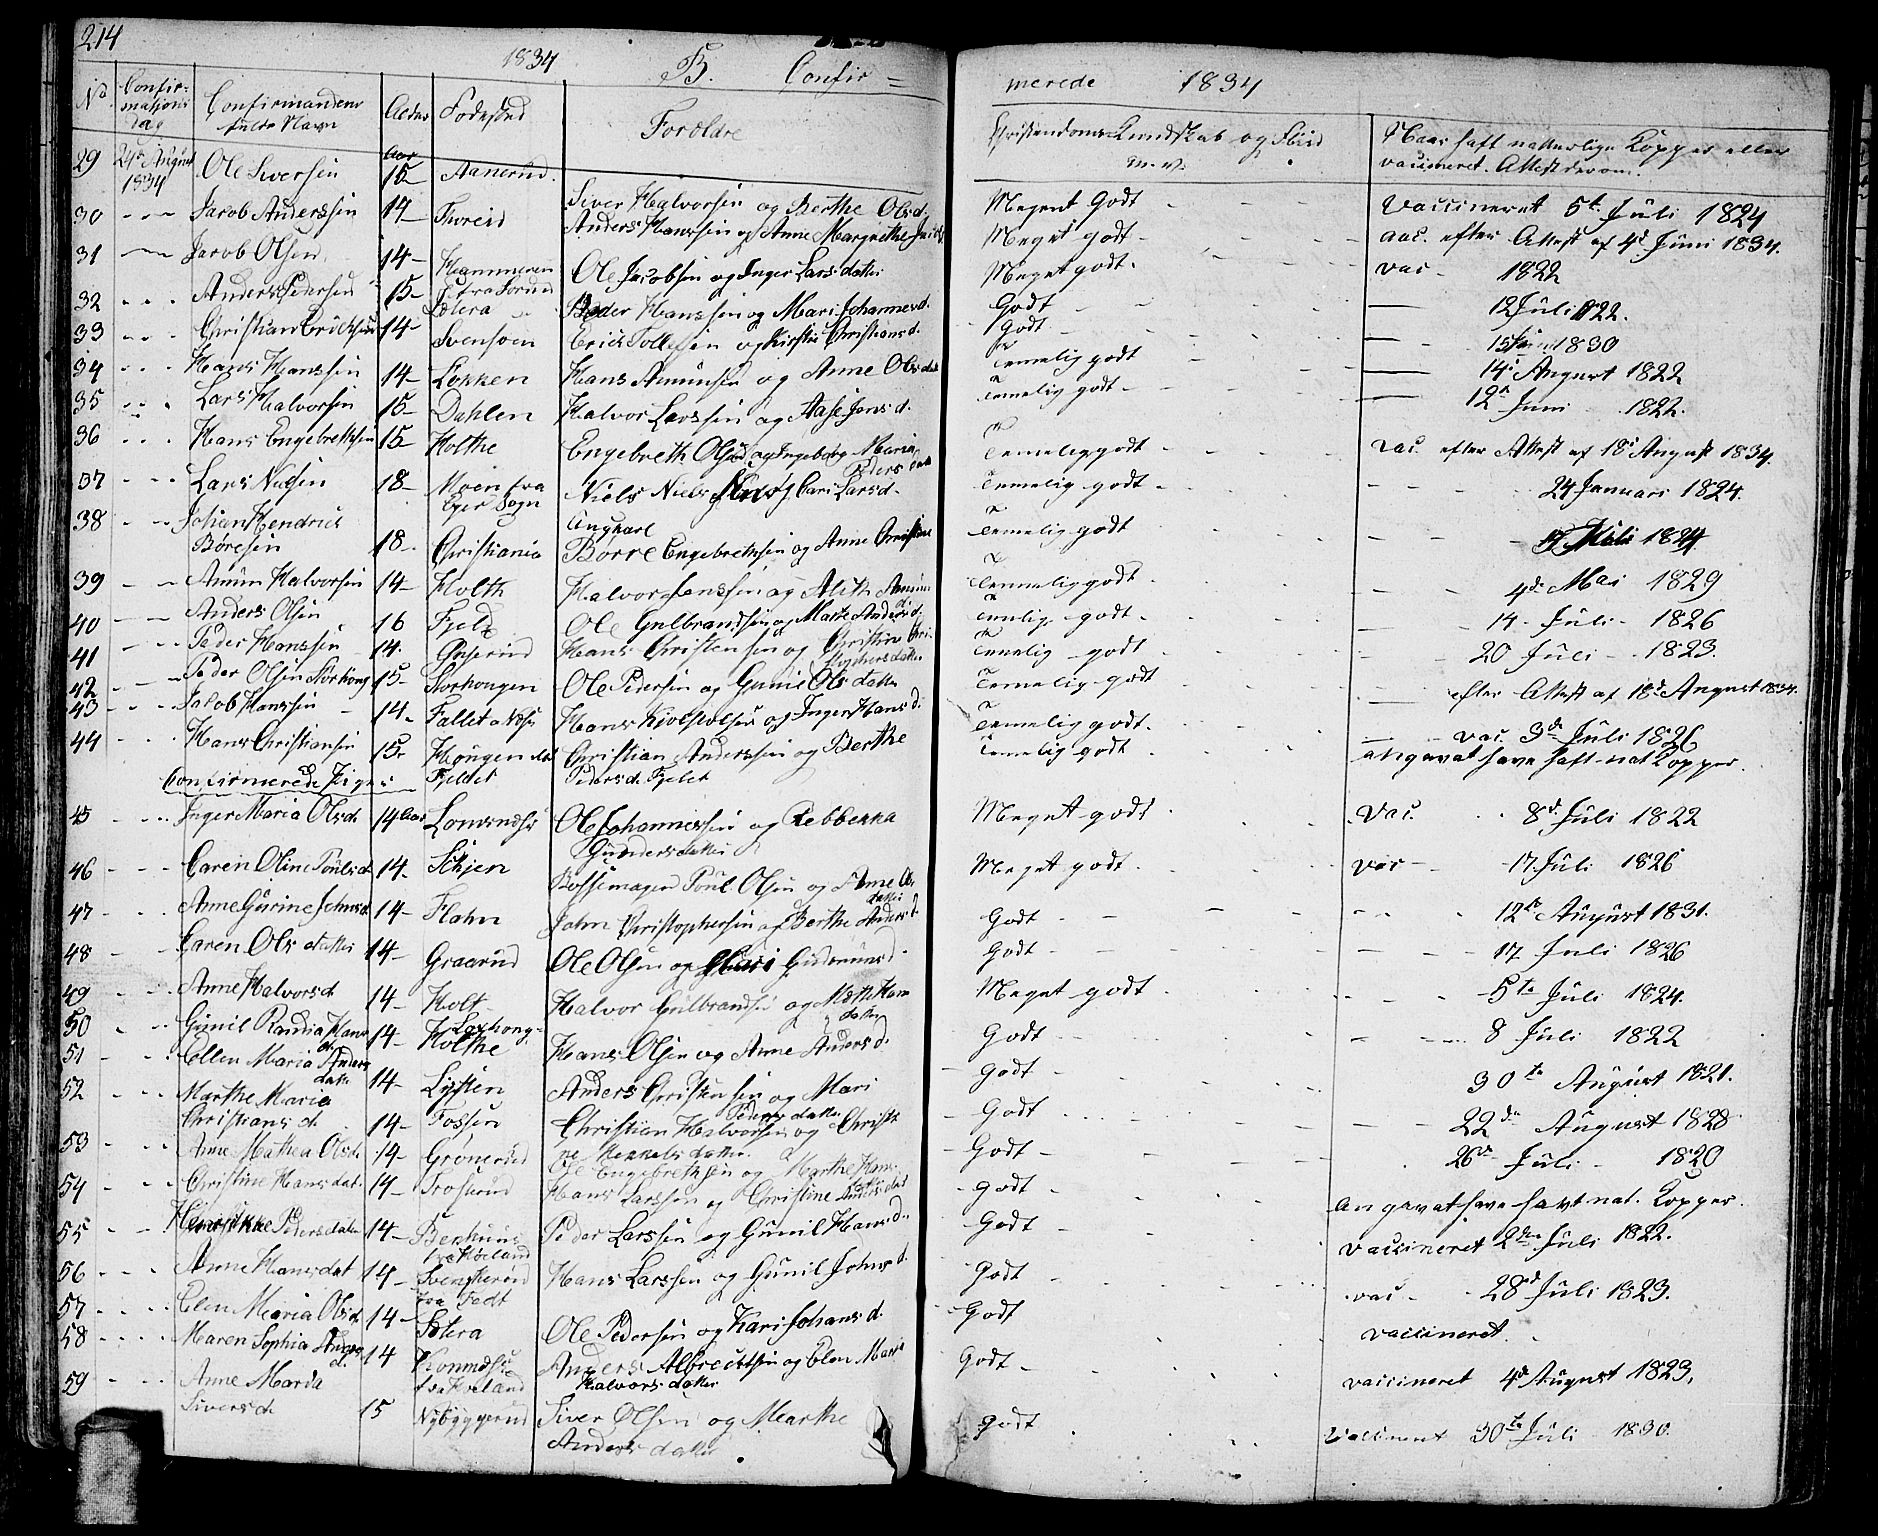 214
1834 B. Confir= merede 1834
No Confir-mations dag Confirmandens fulde Navn Alder Fødested Forældre Christendoms Kundskab og Fliid m.v. Naar haft naturlige Kopper eller vaccineret. Attest derom.
29 24de August 1834 Ole Siversen Aar 15 - Aanerud. Siver Halvorsen og Berthe Olsd. Meget Godt - Vaccineret 5te Juli 1824
30 Jacob Anderssen 14 - Thoreid Anders Hanssen og Anne Margrethe Meget godt - vac. efter Attest af 4de Juni 1834.
31 Jacob Olsen 14 - Hammeren Ole Jacobsen og Inger Larsdatter Meget godt - vac - 1822
32 Anders Pedersen 15 - Sølera Peder Hanssen og Mari Johannesd. Godt 12 Juli 1822.
33 Christian Ericksen 14 - Svensøen Erick Tollefsen og Kirstie Christiansd. Godt - 15 Juni 1830
34 Hans Hanssen 14 - Løkken Hans Amunsen og Anne Olsdatter Temmelig godt 14de August 1822
35 Lars Halvorsen 15 - Dahlen Halvor Larssen og Aase Jensd. Temmelig godt - 12te Juni 1822.
36 Hans Engebrethsen 15 - Holthe Engebreth Olsen og Ingeborg Maria Pedersdatter Temmelig godt vac. efter Attest af 18de August 1834.
37 Lars Nielsen 18 - Moen fra Eger Sogn Niels Nielsen og Cari Larsd. Temmelig godt - 24 Januari 1824.
38 Johan Hendrick Børresen 18 - Christiania Ungkarl Børre Engebrethsen og Anne Christine Temmelig godt Juli 1824
39 Amun Halvorsen 14 - Holth Halvor Jenssen og Alith Amun d. Temmelig godt - 4de Mai 1829
40 Anders Olsen 16 Fjeld Ole Gulbrandsen og Marte Andersd. Temmelig godt - 14 Juli - 1826
41 Peder Hanssen 14. Grøserud Hans Christensen og Christine Christophersdatter Temmelig - godt - 20 Juli - 1823.
42 Peder Olsen Storhong 15 - Storhongen Ole Pedersen og Gunil Olsdatter Temmelig - godt efter Attest af 18de August 1834.
43 Jacob Hanssen 14 - Fallet a Næs Hans Kiølstolsen og Inger Hansd. Temmelig godt - vac. 3de Juli 1826
44 Hans Christiansen 15 Houngen det Fjeldet Christian Anderssen og Berthe Pedersd. Fjelet Temmelig godt - angavat have haft nat Kopper.
Confirmerede Piger
45 Inger Maria Olsd. 14 Aar Lomsnæs Ole Johannessen og Rebbekka Gundersdatter Meget godt. Vac. 8de Juli 1822
46 Caren Oline Poulsd. 14 - Skjen Bøssemager Poul Olsen og Anne Olsdatter Meget godt - vac - 17 Juli 1826
47 Anne Gurine Johnsd. 14 - Flahn John Christophersen og Berthe Andersd. Godt - 12te August 1831.
48 Caren Olsdatter 14 - Graarud Ole Olsen og Mari Gudmunsd. Godt - 17 Juli 1826
49 Anne Halvorsd. 14 - Holt Halvor Gulbrandsen og Mette Hansdatter Meget godt - 5te Juli 1824.
50 Gunil Randia Hansd. 14 - Løxhong Holthe Hans Olsen og Anne Andersd. Godt - 8 Juli 1822
51 Ellen Maria Andersdatter 14 - Lysten Anders Christensen og Mari Pedersdatter Godt - 30te August 1821.
52 Marthe Maria Christiansd. 14 - Fossen Christian Halvorsen og Christine Mekkelsdatter Godt 22de August 1828
53 Anne Mathea Olsd. 14 - Grønerud Ole Engebrethsen og Marthe Hansdatter Godt - 26de Juli - 1820
54 Christine Hansdat. 14 - Troserud Hans Larssen og Christine Andersdat Godt - Angavat have havt nat. Kopper.
55 Pedersdatter 14 - Berhuus fra Høeland Peder Larssen og Gunil Hansd. Godt - vaccineret 2den Juli 1822.
56 Anne Hansdat 14 - Svenskerud fra Fedt Hans Larssen og Gunil Johnsd. Godt - vac - 28de Juli 1823.
57 Elen Maria Olsd. 14 - Sølera Ole Pedersen og Kari Johansd. Godt vaccineret
58 Maren Sophia Andersd. 14 Kommæs fra Høeland Anders Albrechtsen og Elen Maria Halvorsdatter Godt - vaccineret 4de August 1823.
59 Anne Maria Siversd. 15 Nybyggerud Siver Olsen og Marthe Andersdatter Godt vaccineret 30te Juli 1830.